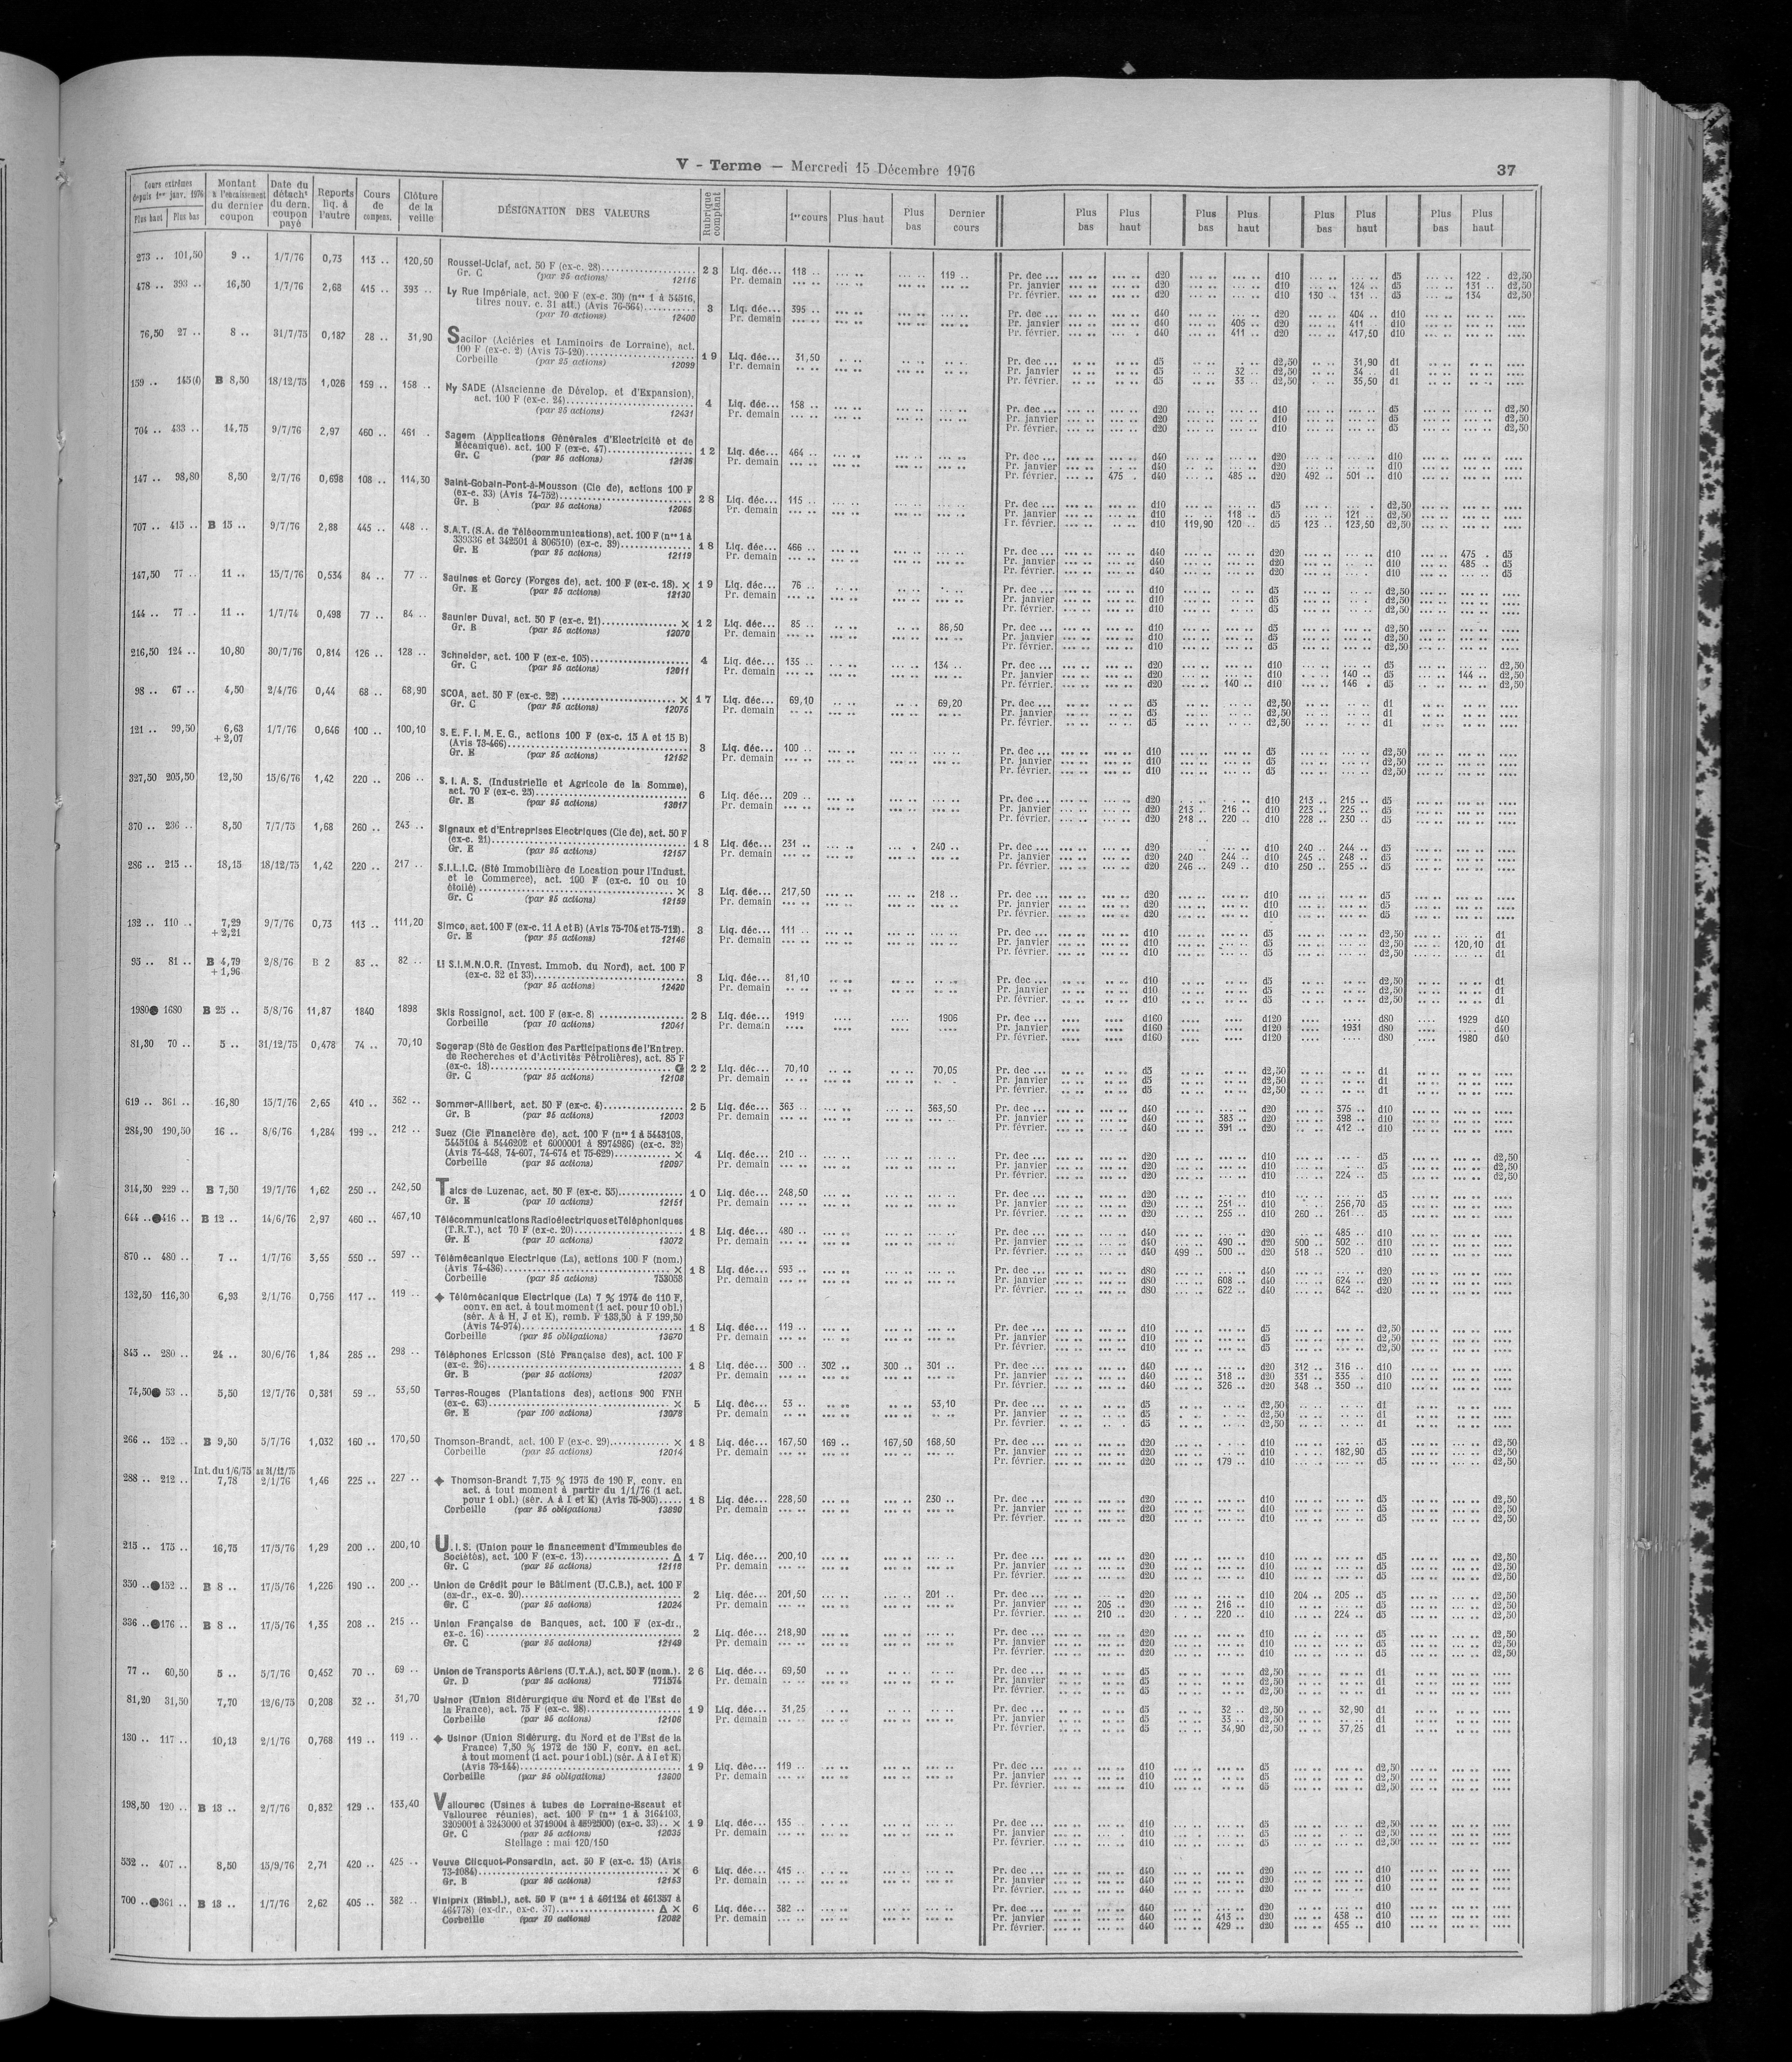 V - Terme — Mercredi 15 Décembre 1976
37
Cours extrêmes depuis 1er janv. 1976
Plus haut Plus bas
Montant à l'encaissement du dernier coupon
Date du détacht du dern. coupon payé
Reports liq. à l'autre
Cours de compens.
Clôture de la veille
DÉSIGNATION DES VALEURS
Rubrique comptant
1er cours Plus haut Plus bas Dernier cours
Plus bas Plus haut Plus bas Plus haut Plus bas Plus haut Plus bas Plus haut
273 .. 101,50 9 .. 1/7/76 0,73 113 .. 120,50 Roussel-Uclaf, act. 50 F (ex-c. 28) 23 Liq. déc... 118 .. 119 ..
Gr. C (par 25 actions) 12116 Pr. demain
Pr. dec ... d20 d10 d5 122 . d2,50
Pr. janvier d20 d10 124 .. d5 131 .. d2,50
Pr. février. d20 d10 130 .. 131 .. d5 134 d2,50
478 .. 393 .. 16,50 1/7/76 2,68 415 .. 393 .. Ly Rue Impériale, act. 200 F (ex-c. 30) (nos 1 à 54516,
titres nouv. c. 31 att.) (Avis 76-564) 3 Liq. déc... 395 ..
(par 10 actions) 12400 Pr. demain
Pr. dec ... d40 d20 404 .. d10
Pr. janvier d40 405 .. d20 411 .. d10
Pr. février. d40 411 .. d20 417,50 d10
76,50 27 .. 8 .. 31/7/75 0,187 28 .. 31,90 Sacilor (Aciéries et Laminoirs de Lorraine), act.
100 F (ex-c. 2) (Avis 75-420) 19 Liq. déc... 31,50
Corbeille (par 25 actions) 12099 Pr. demain
Pr. dec ... d5 d2,50 31,90 d1
Pr. janvier d5 32 .. d2,50 34 .. d1
Pr. février. d5 33 .. d2,50 35,50 d1
159 .. 145(l) B 8,50 18/12/75 1,026 159 .. 158 .. Ny SADE (Alsacienne de Dévelop. et d'Expansion),
act. 100 F (ex-c. 24) 4 Liq. déc... 158 ..
(par 25 actions) 12431 Pr. demain
Pr. dec ... d20 d10 d5 d2,50
Pr. janvier d20 d10 d5 d2,50
Pr. février. d20 d10 d5 d2,50
704 .. 433 .. 14,75 9/7/76 2,97 460 .. 461 . Sagem (Applications Générales d'Electricité et de
Mécanique). act. 100 F (ex-c. 47) 12 Liq. déc... 464 ..
Gr. C (par 25 actions) 12136 Pr. demain
Pr. dec ... d40 d20 d10
Pr. janvier d40 d20 d10
Pr. février. 475 . d40 485 .. d20 492 .. 501 .. d10
147 .. 98,80 8,50 2/7/76 0,698 108 .. 114,30 Saint-Gobain-Pont-à-Mousson (Cie de), actions 100 F
(ex-c. 33) (Avis 74-752) 28 Liq. déc... 115 ..
Gr. B (par 25 actions) 12065 Pr. demain
Pr. dec ... d10 d5 d2,50
Pr. janvier d10 118 .. d5 121 .. d2,50
Pr. février. d10 119,90 120 .. d5 123 .. 123,50 d2,50
707 .. 415 .. B 15 .. 9/7/76 2,88 445 .. 448 .. S.A.T. (S.A. de Télécommunications), act. 100 F (nos 1 à
339336 et 342501 à 806510) (ex-c. 39) 18 Liq. déc... 466 ..
Gr. E (par 25 actions) 12119 Pr. demain
Pr. dec ... d40 d20 d10 475 . d5
Pr. janvier d40 d20 d10 485 .. d5
Pr. février. d40 d20 d10 d5
147,50 77 .. 11 .. 15/7/76 0,534 84 .. 77 .. Saulnes et Gorcy (Forges de), act. 100 F (ex-c. 18). × 19 Liq. déc... 76 ..
Gr. E (par 25 actions) 12130 Pr. demain
Pr. dec ... d10 d5 d2,50
Pr. janvier d10 d5 d2,50
Pr. février. d10 d5 d2,50
144 .. 77 .. 11 .. 1/7/74 0,498 77 .. 84 .. Saunier Duval, act. 50 F (ex-c. 21) × 12 Liq. déc... 85 .. 86,50
Gr. B (par 25 actions) 12070 Pr. demain
Pr. dec ... d10 d5 d2,50
Pr. janvier d10 d5 d2,50
Pr. février. d10 d5 d2,50
216,50 124 .. 10,80 30/7/76 0,814 126 .. 128 .. Schneider, act. 100 F (ex-c. 105) 4 Liq. déc... 135 .. 134 ..
Gr. C (par 25 actions) 12011 Pr. demain
Pr. dec ... d20 d10 d5 d2,50
Pr. janvier d20 d10 140 .. d5 144 .. d2,50
Pr. février. d20 140 .. d10 146 . d5 d2,50
98 .. 67 .. 4,50 2/4/76 0,44 68 .. 68,90 SCOA, act. 50 F (ex-c. 22) × 17 Liq. déc... 69,10 69,20
Gr. C (par 25 actions) 12075 Pr. demain
Pr. dec ... d5 d2,50 d1
Pr. janvier d5 d2,50 d1
Pr. février. d5 d2,50 d1
121 .. 99,50 6,63 + 2,07 1/7/76 0,646 100 .. 100,10 S. E. F. I. M. E. G., actions 100 F (ex-c. 15 A et 15 B)
(Avis 73-466) 3 Liq. déc... 100 ..
Gr. E (par 25 actions) 12152 Pr. demain
Pr. dec ... d10 d5 d2,50
Pr. janvier d10 d5 d2,50
Pr. février. d10 d5 d2,50
327,50 205,50 12,50 15/6/76 1,42 220 .. 206 .. S. I. A. S. (Industrielle et Agricole de la Somme),
act. 70 F (ex-c. 25) 6 Liq. déc... 209 ..
Gr. B (par 25 actions) 13017 Pr. demain
Pr. dec ... d20 d10 213 .. 215 .. d5
Pr. janvier d20 213 .. 216 .. d10 223 .. 225 .. d5
Pr. février. d20 218 .. 220 .. d10 228 .. 230 .. d5
370 .. 236 .. 8,50 7/7/75 1,68 260 .. 243 .. Signaux et d'Entreprises Electriques (Cie de), act. 50 F
(ex-c. 21) 18 Liq. déc... 231 .. 240 ..
Gr. E (par 25 actions) 12157 Pr. demain
Pr. dec ... d20 d10 240 .. 244 .. d5
Pr. janvier d20 240 .. 244 .. d10 245 .. 248 .. d5
Pr. février. d20 246 .. 249 .. d10 250 .. 255 .. d5
286 .. 215 .. 18,15 18/12/75 1,42 220 .. 217 .. S.I.L.I.C. (Sté Immobilière de Location pour l'Indust.
et le Commerce), act. 100 F (ex-c. 10 ou 10
étoilé) × 3 Liq. déc... 217,50 218 ..
Gr. C (par 25 actions) 12159 Pr. demain
Pr. dec ... d20 d10 d5
Pr. janvier d20 d10 d5
Pr. février. d20 d10 d5
132 .. 110 .. 7,29 + 2,21 9/7/76 0,73 113 .. 111,20 Simco, act. 100 F (ex-c. 11 A et B) (Avis 75-704 et 75-712). 3 Liq. déc... 111 ..
Gr. E (par 25 actions) 12146 Pr. demain
Pr. dec ... d10 d5 d2,50 d1
Pr. janvier d10 d5 d2,50 120,10 d1
Pr. février. d10 d5 d2,50 d1
95 .. 81 .. B 4,79 + 1,96 2/8/76 B 2 83 .. 82 .. Li S.I.M.N.O.R. (Invest. Immob. du Nord), act. 100 F
(ex-c. 32 et 33) 3 Liq. déc... 81,10
(par 25 actions) 12420 Pr. demain
Pr. dec ... d10 d5 d2,50 d1
Pr. janvier d10 d5 d2,50 d1
Pr. février. d10 d5 d2,50 d1
1980● 1680 B 25 .. 5/8/76 11,87 1840 1898 Skis Rossignol, act. 100 F (ex-c. 8) 28 Liq. déc... 1919 1906
Corbeille (par 10 actions) 12041 Pr. demain
Pr. dec ... d160 d120 d80 1929 d40
Pr. janvier d160 d120 1931 d80 d40
Pr. février. d160 d120 d80 1980 d40
81,30 70 .. 5 .. 31/12/75 0,478 74 .. 70,10 Sogerap (Sté de Gestion des Participations de l'Entrep.
de Recherches et d'Activités Pétrolières), act. 85 F
(ex-c. 18) G 22 Liq. déc... 70,10 70,05
Gr. C (par 25 actions) 12108 Pr. demain
Pr. dec ... d5 d2,50 d1
Pr. janvier d5 d2,50 d1
Pr. février. d5 d2,50 d1
619 .. 361 .. 16,80 15/7/76 2,65 410 .. 362 .. Sommer-Allibert, act. 50 F (ex-c. 4) 25 Liq. déc... 363 .. 363,50
Gr. B (par 25 actions) 12003 Pr. demain
Pr. dec ... d40 d20 375 .. d10
Pr. janvier d40 383 .. d20 398 .. d10
Pr. février. d40 391 .. d20 412 .. d10
284,90 190,50 16 .. 8/6/76 1,284 199 .. 212 .. Suez (Cie Financière de), act. 100 F (nos 1 à 5443103,
5445104 à 5446202 et 6000001 à 8974986) (ex-c. 32)
(Avis 74-448, 74-607, 74-674 et 75-629) × 4 Liq. déc... 210 ..
Corbeille (par 25 actions) 12097 Pr. demain
Pr. dec ... d20 d10 d5 d2,50
Pr. janvier d20 d10 d5 d2,50
Pr. février. d20 d10 224 .. d5 d2,50
314,50 229 .. B 7,50 19/7/76 1,62 250 .. 242,50 Talcs de Luzenac, act. 50 F (ex-c. 55) 10 Liq. déc... 248,50
Gr. E (par 10 actions) 12151 Pr. demain
Pr. dec ... d20 d10 d5
Pr. janvier d20 251 .. d10 256,70 d5
Pr. février. d20 255 .. d10 260 .. 261 .. d5
644 ..●416 .. B 12 .. 14/6/76 2,97 460 .. 467,10 Télécommunications Radioélectriques et Téléphoniques
(T.R.T.), act 70 F (ex-c. 20) 18 Liq. déc... 480 ..
Gr. E (par 10 actions) 13072 Pr. demain
Pr. dec ... d40 d20 485 .. d10
Pr. janvier d40 490 .. d20 500 .. 502 .. d10
Pr. février. d40 499 .. 500 .. d20 518 .. 520 .. d10
870 .. 480 .. 7 .. 1/7/76 3,55 550 .. 597 .. Télémécanique Electrique (La), actions 100 F (nom.)
(Avis 74-436) × 18 Liq. déc... 593 ..
Corbeille (par 25 actions) 753058 Pr. demain
Pr. dec ... d80 d40 d20
Pr. janvier d80 608 .. d40 624 .. d20
Pr. février. d80 622 .. d40 642 .. d20
132,50 116,30 6,93 2/1/76 0,756 117 .. 119 .. ◆ Télémécanique Electrique (La) 7 % 1974 de 110 F,
conv. en act. à tout moment (1 act. pour 10 obl.)
(sér. A à H, J et K), remb. F 133,50 à F 199,50
(Avis 74-974) 18 Liq. déc... 119 ..
Corbeille (par 25 obligations) 13670 Pr. demain
Pr. dec ... d10 d5 d2,50
Pr. janvier d10 d5 d2,50
Pr. février. d10 d5 d2,50
845 .. 280 .. 24 .. 30/6/76 1,84 285 .. 298 .. Téléphones Ericsson (Sté Française des), act. 100 F
(ex-c. 26) 18 Liq. déc... 300 .. 302 .. 300 .. 301 ..
Gr. B (par 25 actions) 12037 Pr. demain
Pr. dec ... d40 d20 312 .. 316 .. d10
Pr. janvier d40 318 .. d20 331 .. 335 .. d10
Pr. février. d40 326 .. d20 348 .. 350 .. d10
74,50● 53 .. 5,50 12/7/76 0,381 59 .. 53,50 Terres-Rouges (Plantations des), actions 900 FNH
(ex-c. 63) × 5 Liq. déc... 53 .. 53,10
Gr. E (par 100 actions) 13078 Pr. demain
Pr. dec ... d5 d2,50 d1
Pr. janvier d5 d2,50 d1
Pr. février. d5 d2,50 d1
266 .. 152 .. B 9,50 5/7/76 1,032 160 .. 170,50 Thomson-Brandt, act. 100 F (ex-c. 29) × 18 Liq. déc... 167,50 169 .. 167,50 168,50
Corbeille (par 25 actions) 12014 Pr. demain
Pr. dec ... d20 d10 d5 d2,50
Pr. janvier d20 d10 182,90 d5 d2,50
Pr. février. d20 179 .. d10 d5 d2,50
Int. du 1/6/75 au 31/12/75
288 .. 212 .. 7,78 2/1/76 1,46 225 .. 227 .. ◆ Thomson-Brandt 7,75 % 1975 de 190 F, conv. en
act. à tout moment à partir du 1/1/76 (1 act.
pour 1 obl.) (sér. A à I et K) (Avis 75-905) 18 Liq. déc... 228,50 230 ..
Corbeille (par 25 obligations) 13690 Pr. demain
Pr. dec ... d20 d10 d5 d2,50
Pr. janvier d20 d10 d5 d2,50
Pr. février. d20 d10 d5 d2,50
215 .. 175 .. 16,75 17/5/76 1,29 200 .. 200,10 U.I.S. (Union pour le financement d'Immeubles de
Sociétés), act. 100 F (ex-c. 13) Δ 17 Liq. déc... 200,10
Gr. C (par 25 actions) 12118 Pr. demain
Pr. dec ... d20 d10 d5 d2,50
Pr. janvier d20 d10 d5 d2,50
Pr. février. d20 d10 d5 d2,50
350 ..●152 .. B 8 .. 17/5/76 1,226 190 .. 200 .. Union de Crédit pour le Bâtiment (U.C.B.), act. 100 F
(ex-dr., ex-c. 20) 2 Liq. déc... 201,50 201 ..
Gr. C (par 25 actions) 12024 Pr. demain
Pr. dec ... d20 d10 204 .. 205 .. d5 d2,50
Pr. janvier 205 .. d20 216 .. d10 d5 d2,50
Pr. février. 210 .. d20 220 .. d10 224 .. d5 d2,50
336 ..●176 .. B 8 .. 17/5/76 1,35 208 .. 215 .. Union Française de Banques, act. 100 F (ex-dr.,
ex-c. 16) 2 Liq. déc... 218,90
Gr. C (par 25 actions) 12149 Pr. demain
Pr. dec ... d20 d10 d5 d2,50
Pr. janvier d20 d10 d5 d2,50
Pr. février. d20 d10 d5 d2,50
77 .. 60,50 5 .. 5/7/76 0,452 70 .. 69 .. Union de Transports Aériens (U.T.A.), act. 50 F (nom.). 26 Liq. déc... 69,50
Gr. D (par 25 actions) 771574 Pr. demain
Pr. dec ... d5 d2,50 d1
Pr. janvier d5 d2,50 d1
Pr. février. d5 d2,50 d1
81,20 31,50 7,70 12/6/75 0,208 32 .. 31,70 Usinor (Union Sidérurgique du Nord et de l'Est de
la France), act. 75 F (ex-c. 28) 19 Liq. déc... 31,25
Corbeille (par 25 actions) 12106 Pr. demain
Pr. dec ... d5 32 .. d2,50 32,90 d1
Pr. janvier d5 33 .. d2,50 d1
Pr. février. d5 34,90 d2,50 37,25 d1
130 .. 117 .. 10,13 2/1/76 0,768 119 .. 119 .. ◆ Usinor (Union Sidérurg. du Nord et de l'Est de la
France) 7,50 % 1972 de 130 F, conv. en act.
à tout moment (1 act. pour 1 obl.) (sér. A à I et K)
(Avis 73-144) 19 Liq. déc... 119 ..
Corbeille (par 25 obligations) 13600 Pr. demain
Pr. dec ... d10 d5 d2,50
Pr. janvier d10 d5 d2,50
Pr. février. d10 d5 d2,50
198,50 120 .. B 13 .. 2/7/76 0,832 129 .. 133,40 Vallourec (Usines à tubes de Lorraine-Escaut et
Vallourec réunies), act. 100 F (nos 1 à 3164103,
3209001 à 3243000 et 3719001 à 4892500) (ex-c. 33).. × 19 Liq. déc... 135 ..
Gr. C (par 25 actions) 12035 Pr. demain
Stellage : mai 120/150
Pr. dec ... d10 d5 d2,50
Pr. janvier d10 d5 d2,50
Pr. février. d10 d5 d2,50
552 .. 407 .. 8,50 15/9/76 2,71 420 .. 425 .. Veuve Clicquot-Ponsardin, act. 50 F (ex-c. 15) (Avis
73-1084) × 6 Liq. déc... 415 ..
Gr. B (par 25 actions) 12153 Pr. demain
Pr. dec ... d40 d20 d10
Pr. janvier d40 d20 d10
Pr. février. d40 d20 d10
700 ..●361 .. B 13 .. 1/7/76 2,62 405 .. 382 .. Viniprix (Etabl.), act. 50 F (nos 1 à 461124 et 461357 à
464778) (ex-dr., ex-c. 37) Δ × 6 Liq. déc... 382 ..
Corbeille (par 10 actions) 12082 Pr. demain
Pr. dec ... d40 d20 d10
Pr. janvier d40 413 .. d20 438 .. d10
Pr. février. d40 429 .. d20 455 .. d10